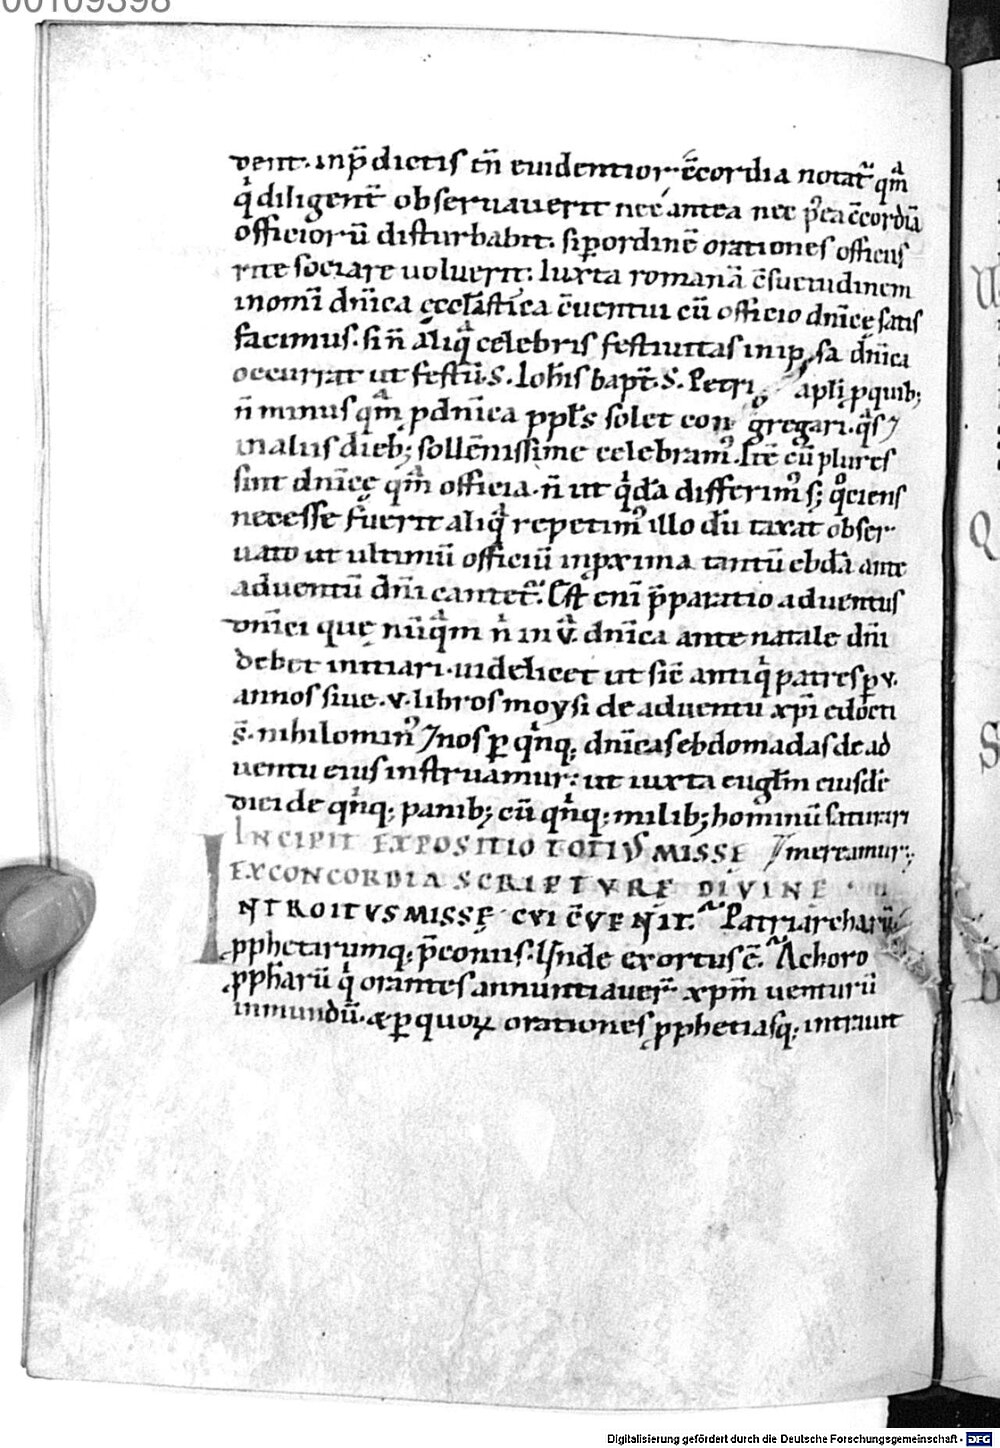 00109398
dent. in p̄dictis tn̄ euidentior c̄cordia notat᷑ qm̄
q̇ diligent᷑ obseruauerit nec antea nec p̾ea c̄cordiā
officiorū disturbabit. si ꝑ ordinē orationes officiis
rite sociare uoluerit; Iuxta romanā c̄suetudinem
in omī dn̄ica ęcclāstica c̄uentui cū officio dn̄icę satis
facimus. si n̄ aliq̄ celebris festiuitas in ipsa dn̄ica
occurrat ut festū. S. Ioh̄is bapt̄. S. Petri apl̄i ꝓ quib;
n̄ minus qm̄ ꝓ dn̄ica ppl̄s solet congregari. q̄s ⁊
in aliis dieb; sollēnissime celebram᷒. Itē cū plures
sint dn̄icę qm̄ officia. n̄ ut q̇dā differim᷒ s; q̊ciens
necesse fuerit aliq̄ repetim᷒ illo dū taxat obser
uato ut ultimū officiū in ꝓxima tantū ebdā ante
aduentū dn̄i cantet᷑. Est enī p̄paratio aduentus
dn̄ici quę nūq̄m n̄ in v̄ dn̄ica ante natale dn̄i
debet initiari. uidelicet ut sic̄ antiq̇ patres ꝑ v.
annos siue .v. libros moysi de aduentu xp̄i edocti
s̄. nihilomin᷒ ⁊ nos ꝑ qnq; dn̄icas ebdomadas de ad
uentu eius instruamur; ut iuxta eugl̄m eiusdē
diei de qnq; panib; cū qnq; milib; hominū saturari
INCIPIT EXPOSITIO TOTIVS MISSE mereamur;
EX CONCORDIA SCRIPTVRE DIVINE
INTROITVS MISSĘ CVI C̄VENIT. Patriarcharū
ꝓphetarumq; p̄coniis. Unde exortus ē. A choro
ꝓph̄arū q̇ orantes annuntiauer̄ xp̄m uenturū
in mundū. & ꝑ quoꝝ orationes ꝓphetiasq; intrauit
Digitalisierung gefördert durch die Deutsche Forschungsgemeinschaft - DFG